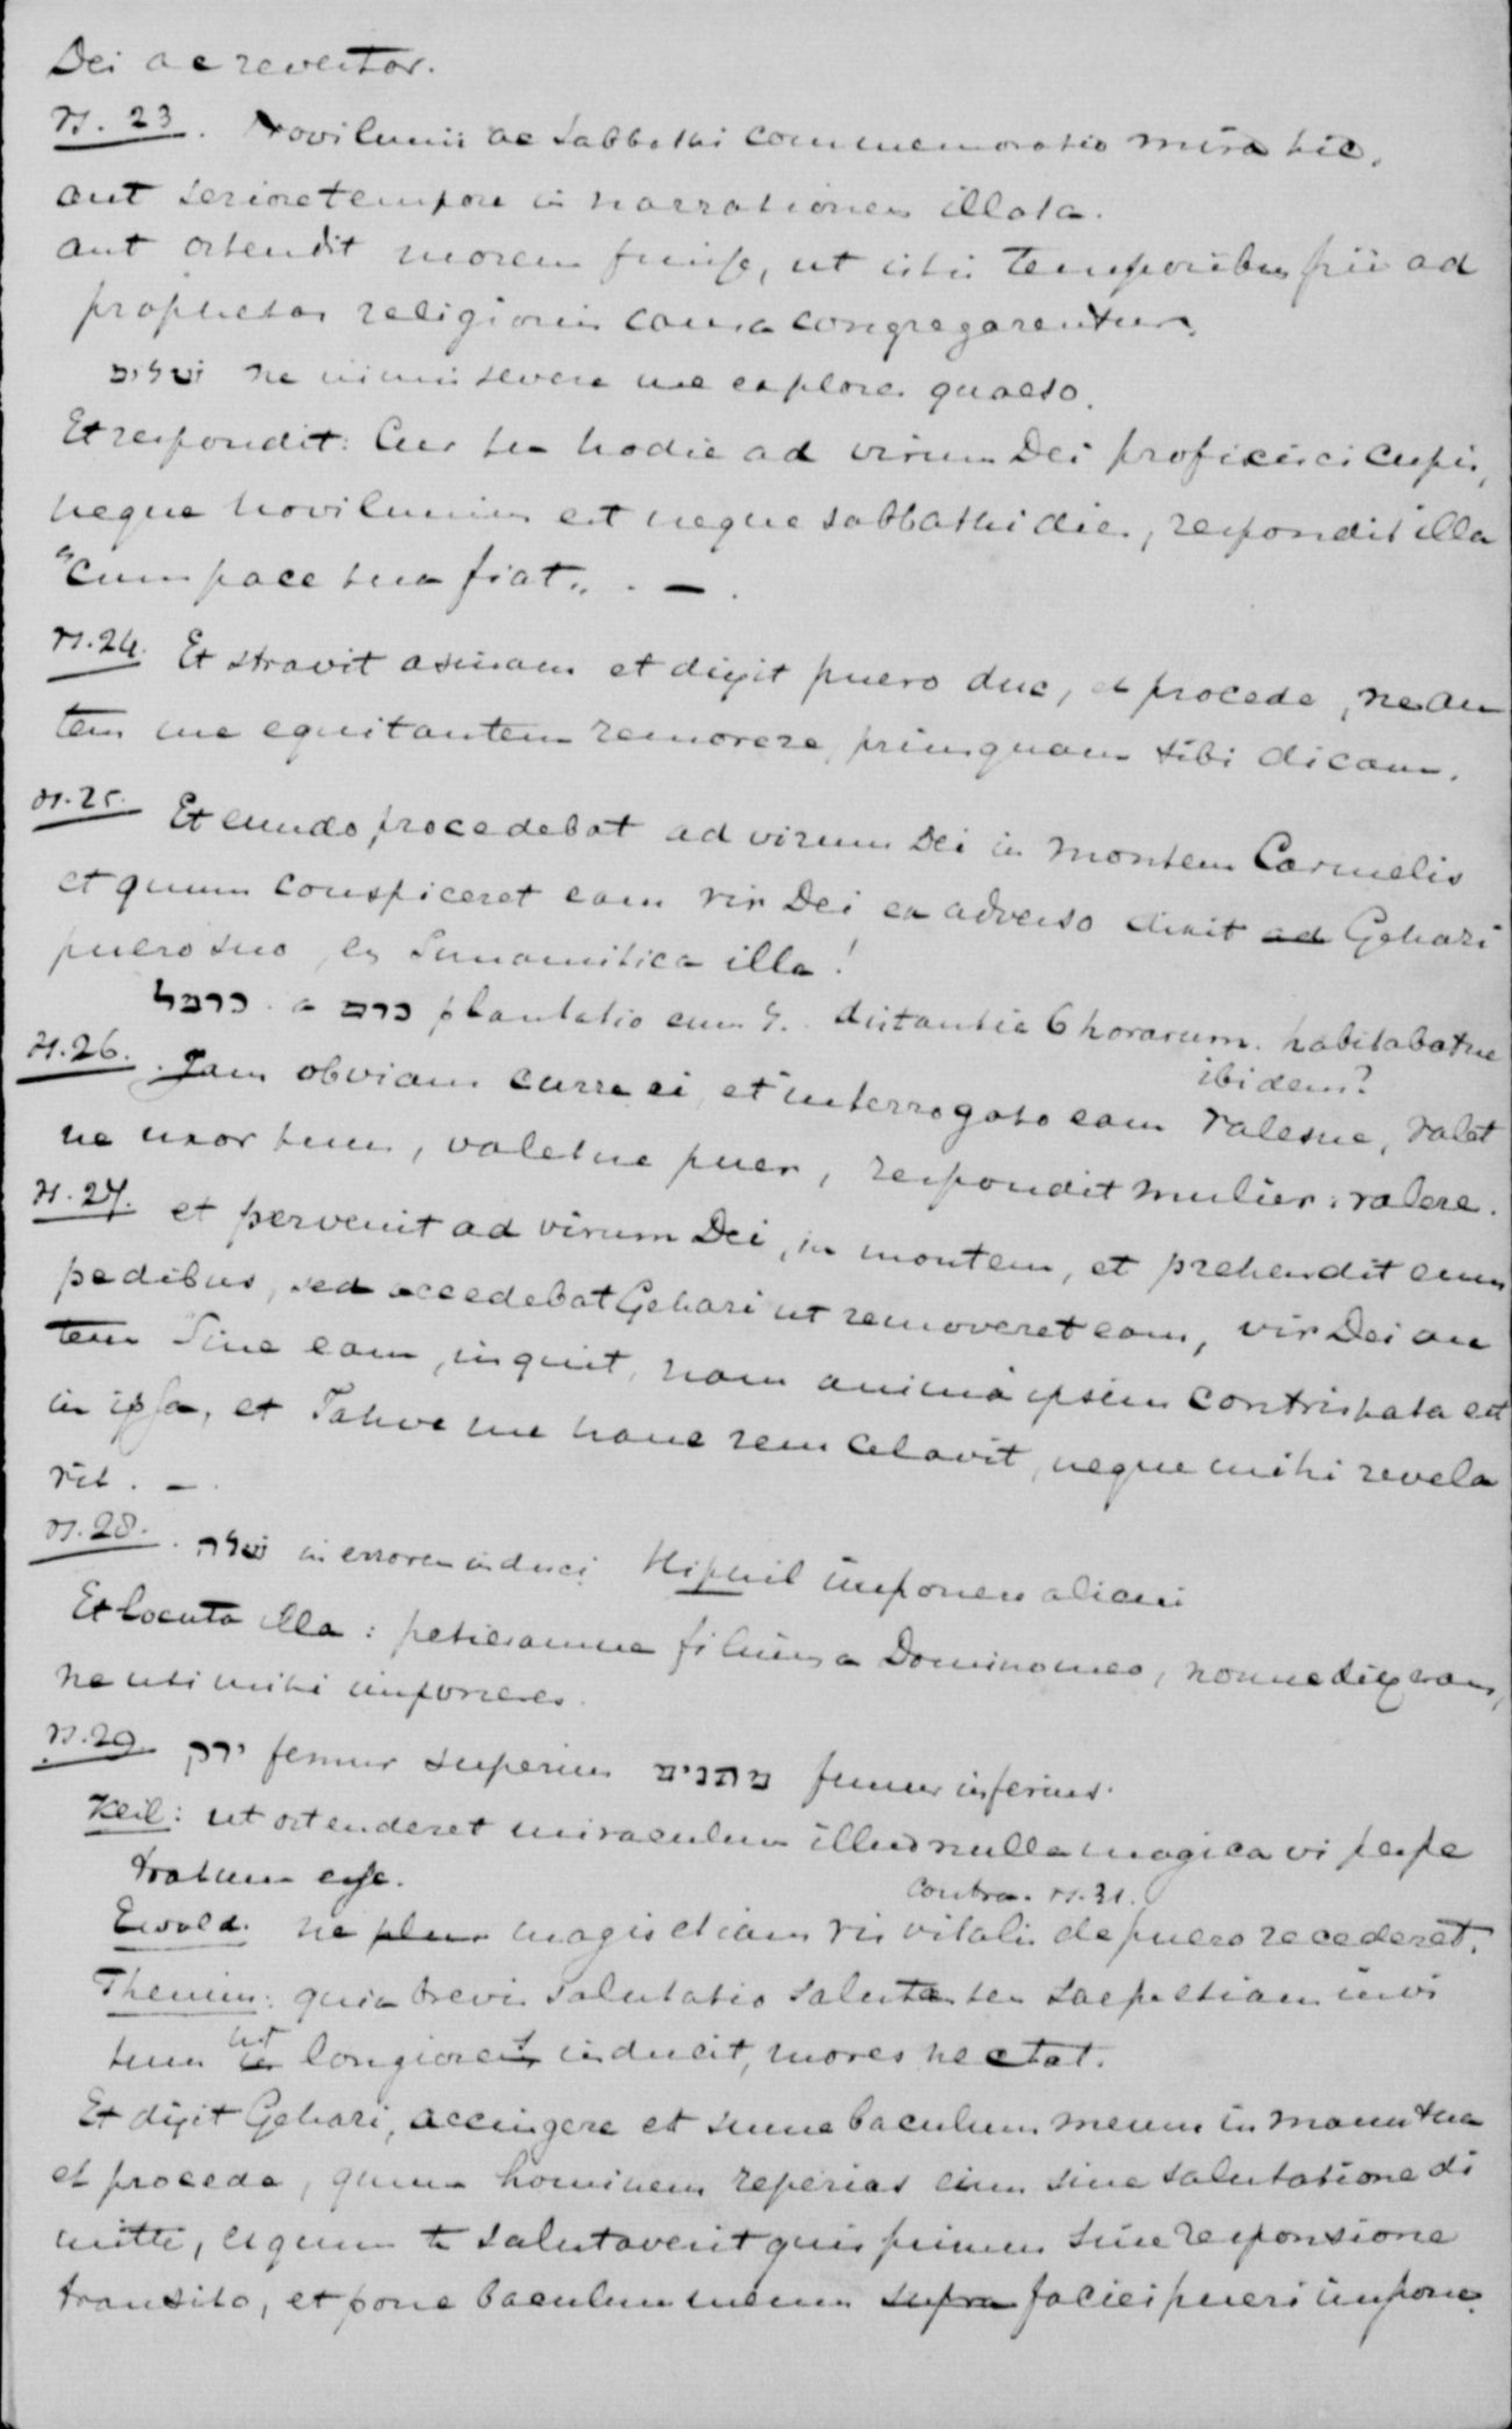 Dei ac revertor.
vs. 23. Novilunii ac Sabbathi commemoratio mira hic,
aut seriore tempore in narrationem illata.
aut ostendit morem fuisse, ut istis temporibus pii ad
prophetas religionis causa congregarentur.
שלום ne nimis severe me explores quaeso.
Et respondit: Cur tu hodie ad virum Dei proficisci cupis,
neque novilunium est neque sabbathi dies, respondit illa
"cum pace tua fiat„ . — .
vs. 24. Et stravit asinam et dixit puero duc, et procede, ne au
tem me equitantem remorere, priusquam tibi dicam.
vs. 25. Et eundo procedebat ad virum Dei in montem Carmelis
et quum conspiceret eam vir Dei ex adverso dixit ad Gehazi
puero suo, en Sunamitica illa!
כרמל a כרם plantatio cum ל. distantia 6 horarum. habitabatne
ibidem?
vs. 26. Jam obviam curre ei, et interrogato eam valesne, valet
ne uxor tuus, valetne puer, respondit mulier: valere.
vs. 27. et pervenit ad virum Dei, in montem, et prehendit eum
pedibus, sed accedebat Gehazi ut removeret eam, vir Dei au
tem Sine eam, inquit, nam anima ipsius contristata est
in ipsa, et Jahve me hanc rem celavit, neque mihi revela
vit. —.
vs. 28. שלה in errorem induci Hiphil imponere alicui
Et locuta illa: petieramne filium a Domino meo, nonne dixeram,
ne uti mihi imponeres.
vs. 29. ירך femur superius מתנים femur inferius.
Keil: ut ostenderet miraculum illud nulla magica vi perpe
tratum esse.
contra. vs. 31.
Ewald. ne plus magis etiam vis vitalis de puero recederet.
Thenius: quia brevis salutatio salutantem saepe etiam invi
tum ut in longiorem inducit, mores nectat.
Et dixit Gehazi, accingere et sume baculum meum in manu tua
et procede, quum hominem reperias eum sine salutatione di
mitte, et quum te salutaverit quis primum sine responsione
transito, et pone baculum meum supra faciei pueri impone.